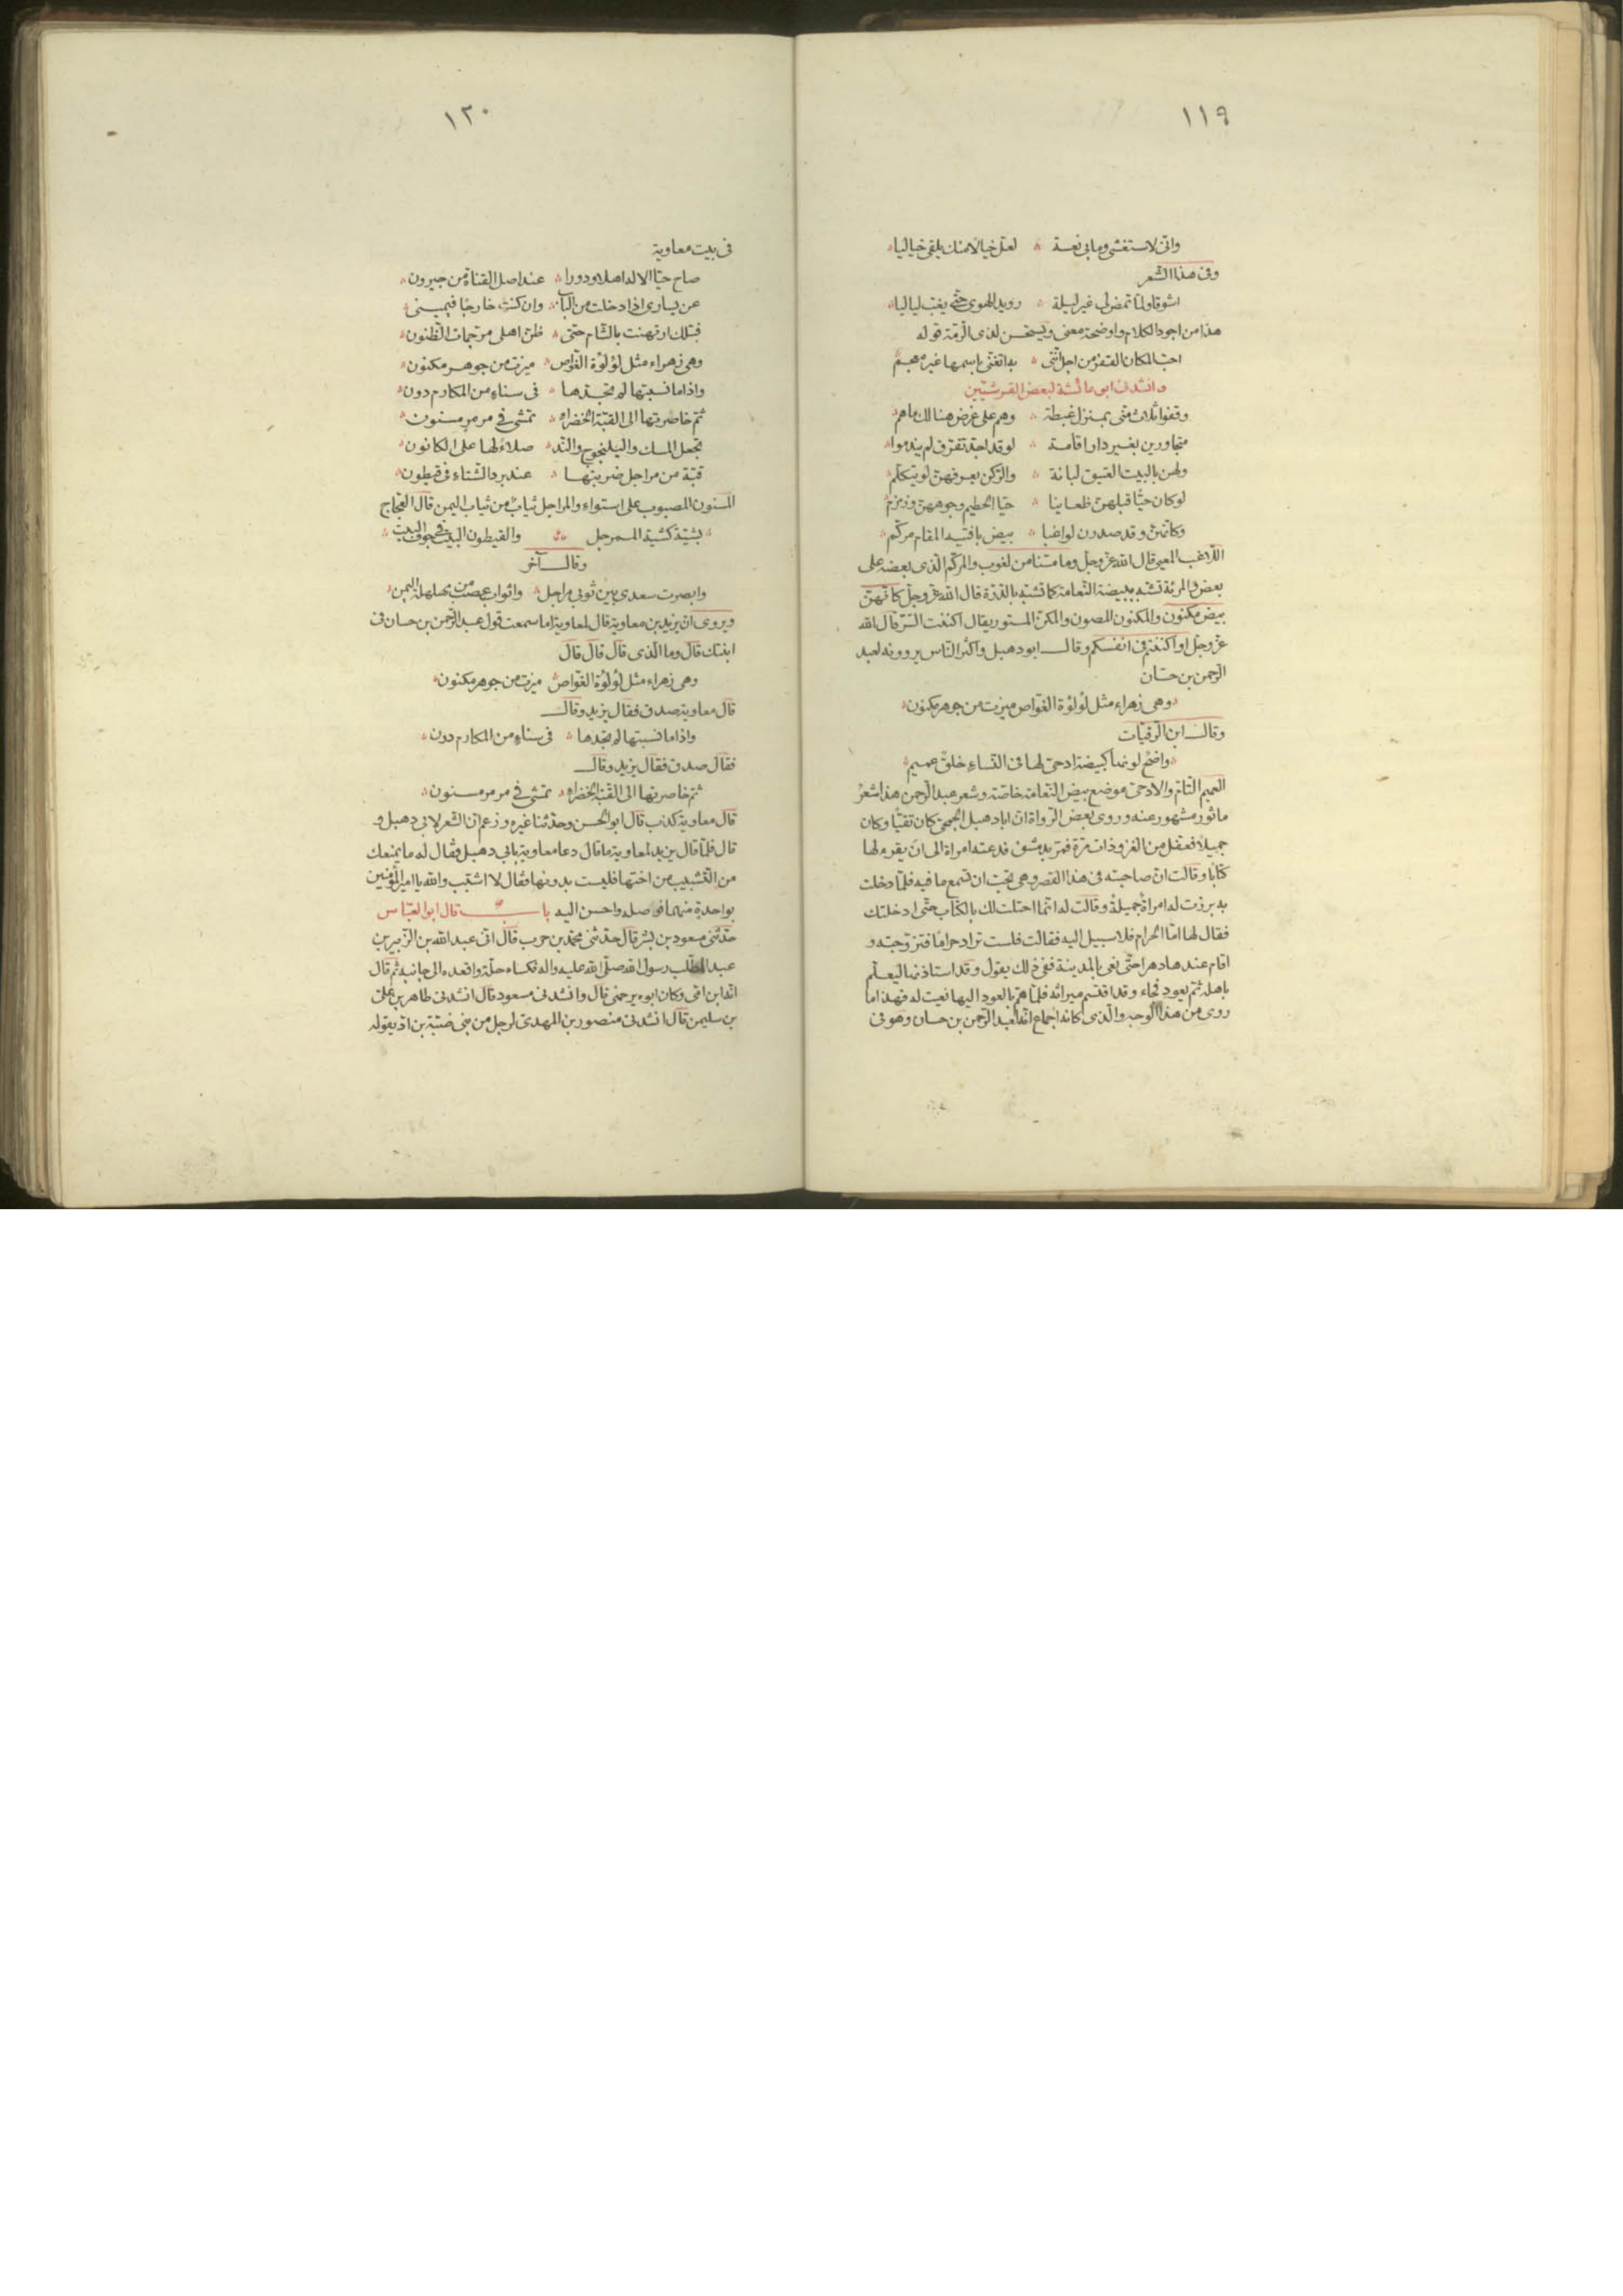 ١١٩
وانى لاستغشى وما بى نعسة ؞ لعل خيالا منك يلقى خياليا ؞
وفى هذا الشعر
اشوقا ولما تمض لى غير ليلة ؞ رويد الهوى حتى يغب لياليا ؞
هذا من اجود الكلام واوضحه معنى ويستحسن لذى الرمة قوله
احب المكان القفر من اجل اننى ؞ به اتغنى باسمها غير معجم
وانشدنى ابن عائشة لبعض القرشيين
وقفوا ثلاث منى بمنزل غبطة ؞ وهم على غرض هنالك ما هم ؞
متجاورين بغير دار اقامة ؞ لو قد اجد تفرق لم يندموا ؞
ولهن بالبيت العتيق لبانة ؞ والركن يعرفهن لو يتكلم ؞
لو كان حيا قبلهن ظعاينا ؞ حيا الحطيم وجوههن وزمزم
وكانهن وقد صدرن لواغبا ؞ بيض بافنية المقام مركم ؞
اللاغب المعيى قال الله عز وجل وما مسنا من لغوب والمركم الذى بعضه على
بعض والمرئة تشبه ببيضة النعامة كما تشبه بالدرة قال الله عز وجل كانهن
بيض مكنون والمكنون المصون والمكن المستور يقال اكننت السر قال الله
عز وجل او اكننتم فى انفسكم وقال ابو دهبل واكثر الناس يروونه لعبد
الرحمن بن حسان
؞ وهى زهراء مثل لؤلؤة الغواص ميزت من جوهر مكنون ؞
وقال ابن الرقيات
؞ واضح لونها كبيضة ادحى لها فى النساء خلق عميم ؞
العميم التام والادحى موضع بيض النعامة خاصة وشعر عبد الرحمن هذا شعر
ماثور مشهور عنه وروى بعض الرواة ان ابا دهبل الجمحى كان تقيا وكان
جميلا فقفل من الغزو ذات مرة فمر بدمشق فدعته امراة الى ان يقرء لها
كتابا وقالت ان صاحبته فى هذا القصر وهى تحب ان تسمع ما فيه فلما دخلت
به برزت له امراة جميلة وقالت له انما احتلت لك بالكتاب حتى ادخلتك
فقال لها اما الحرام فلا سبيل اليه فقالت فلست تراد حراما فتزوجته و
اقام عندها دهرا حتى نعى بالمدينة ففى ذلك يقول وقد استاذنها ليعلم
باهله ثم يعود فجاء وقد اقتسم ميراثه فلما هم بالعود اليها نعيت له فهذا ما
روى من هذا الوجه والذى كانه اجماع انه لعبد الرحمن بن حسان وهو فى
١٢٠
فى بيت معاوية
صاح حيا الاله اهلا ودورا ؞ عند اصل القناة من جيرون ؞
عن يسارى اذا دخلت من الباب ؞ وان كنت خارجا فيمينى ؞
فبتلك ارتهنت بالشام حتى ؞ ظن اهلى مرجمات الظنون ؞
وهى زهراء مثل لؤلؤة الغواص ؞ ميزت من جوهر مكنون ؞
واذا ما نسبتها لم تجدها ؞ فى سناء من المكارم دون ؞
ثم خاصرتها الى القبة الخضراء ؞ تمشى فى مرمر مسنون ؞
تجعل المسك واليلنجوج والند ؞ صلاء لها على الكانون ؞
قبة من مراجل ضربتها ؞ عند برد الشتاء فى قيطون ؞
المسنون المصبوب على استواء والمراجل ثياب من ثياب اليمن قال العجاج
؞ بشية كشية الممرجل ؞ والقيطون البيت فى جوف البيت ؞
وقال آخر
وابصرت سعدى بين ثوبى مراجل ؞ واثواب عصب من مهلهلة اليمن ؞
ويروى ان يزيد بن معاوية قال لمعاوية اما سمعت قول عبد الرحمن بن حسان فى
ابنتك قال وما الذى قال قال قال
وهى زهراء مثل لؤلؤة الغواص ؞ ميزت من جوهر مكنون ؞
قال معاوية صدق فقال يزيد وقال
واذا ما نسبتها لم تجدها ؞ فى سناء من المكارم دون ؞
فقال صدق فقال يزيد وقال
ثم خاصرتها الى القبة الخضراء ؞ تمشى فى مرمر مسنون ؞
قال معاوية كذب قال ابو الحسن وحدثنا غيره وزعم ان الشعر لابى دهبل و
قال فلما قال يزيد لمعاوية ما قال دعا معاوية بابى دهبل فقال له ما يمنعك
من التشبيب من اختها فليست بدونها فقال لا اشبب والله يا امير المؤمنين
بواحدة منهما فوصله واحسن اليه باب قال ابو العباس
حدثنى مسعود بن بشر قال حدثنى محمد بن حرب قال اتى عبد الله بن الزبير بن
عبد المطلب رسول الله صلى الله عليه واله فكساه حلة واقعده الى جانبه ثم قال
انه ابن امى وكان ابوه يرحمنى قال وانشدنى مسعود قال انشدنى طاهر بن على
بن سليمن قال انشدنى منصور بن المهدى لرجل من بنى ضبة بن اد يقوله